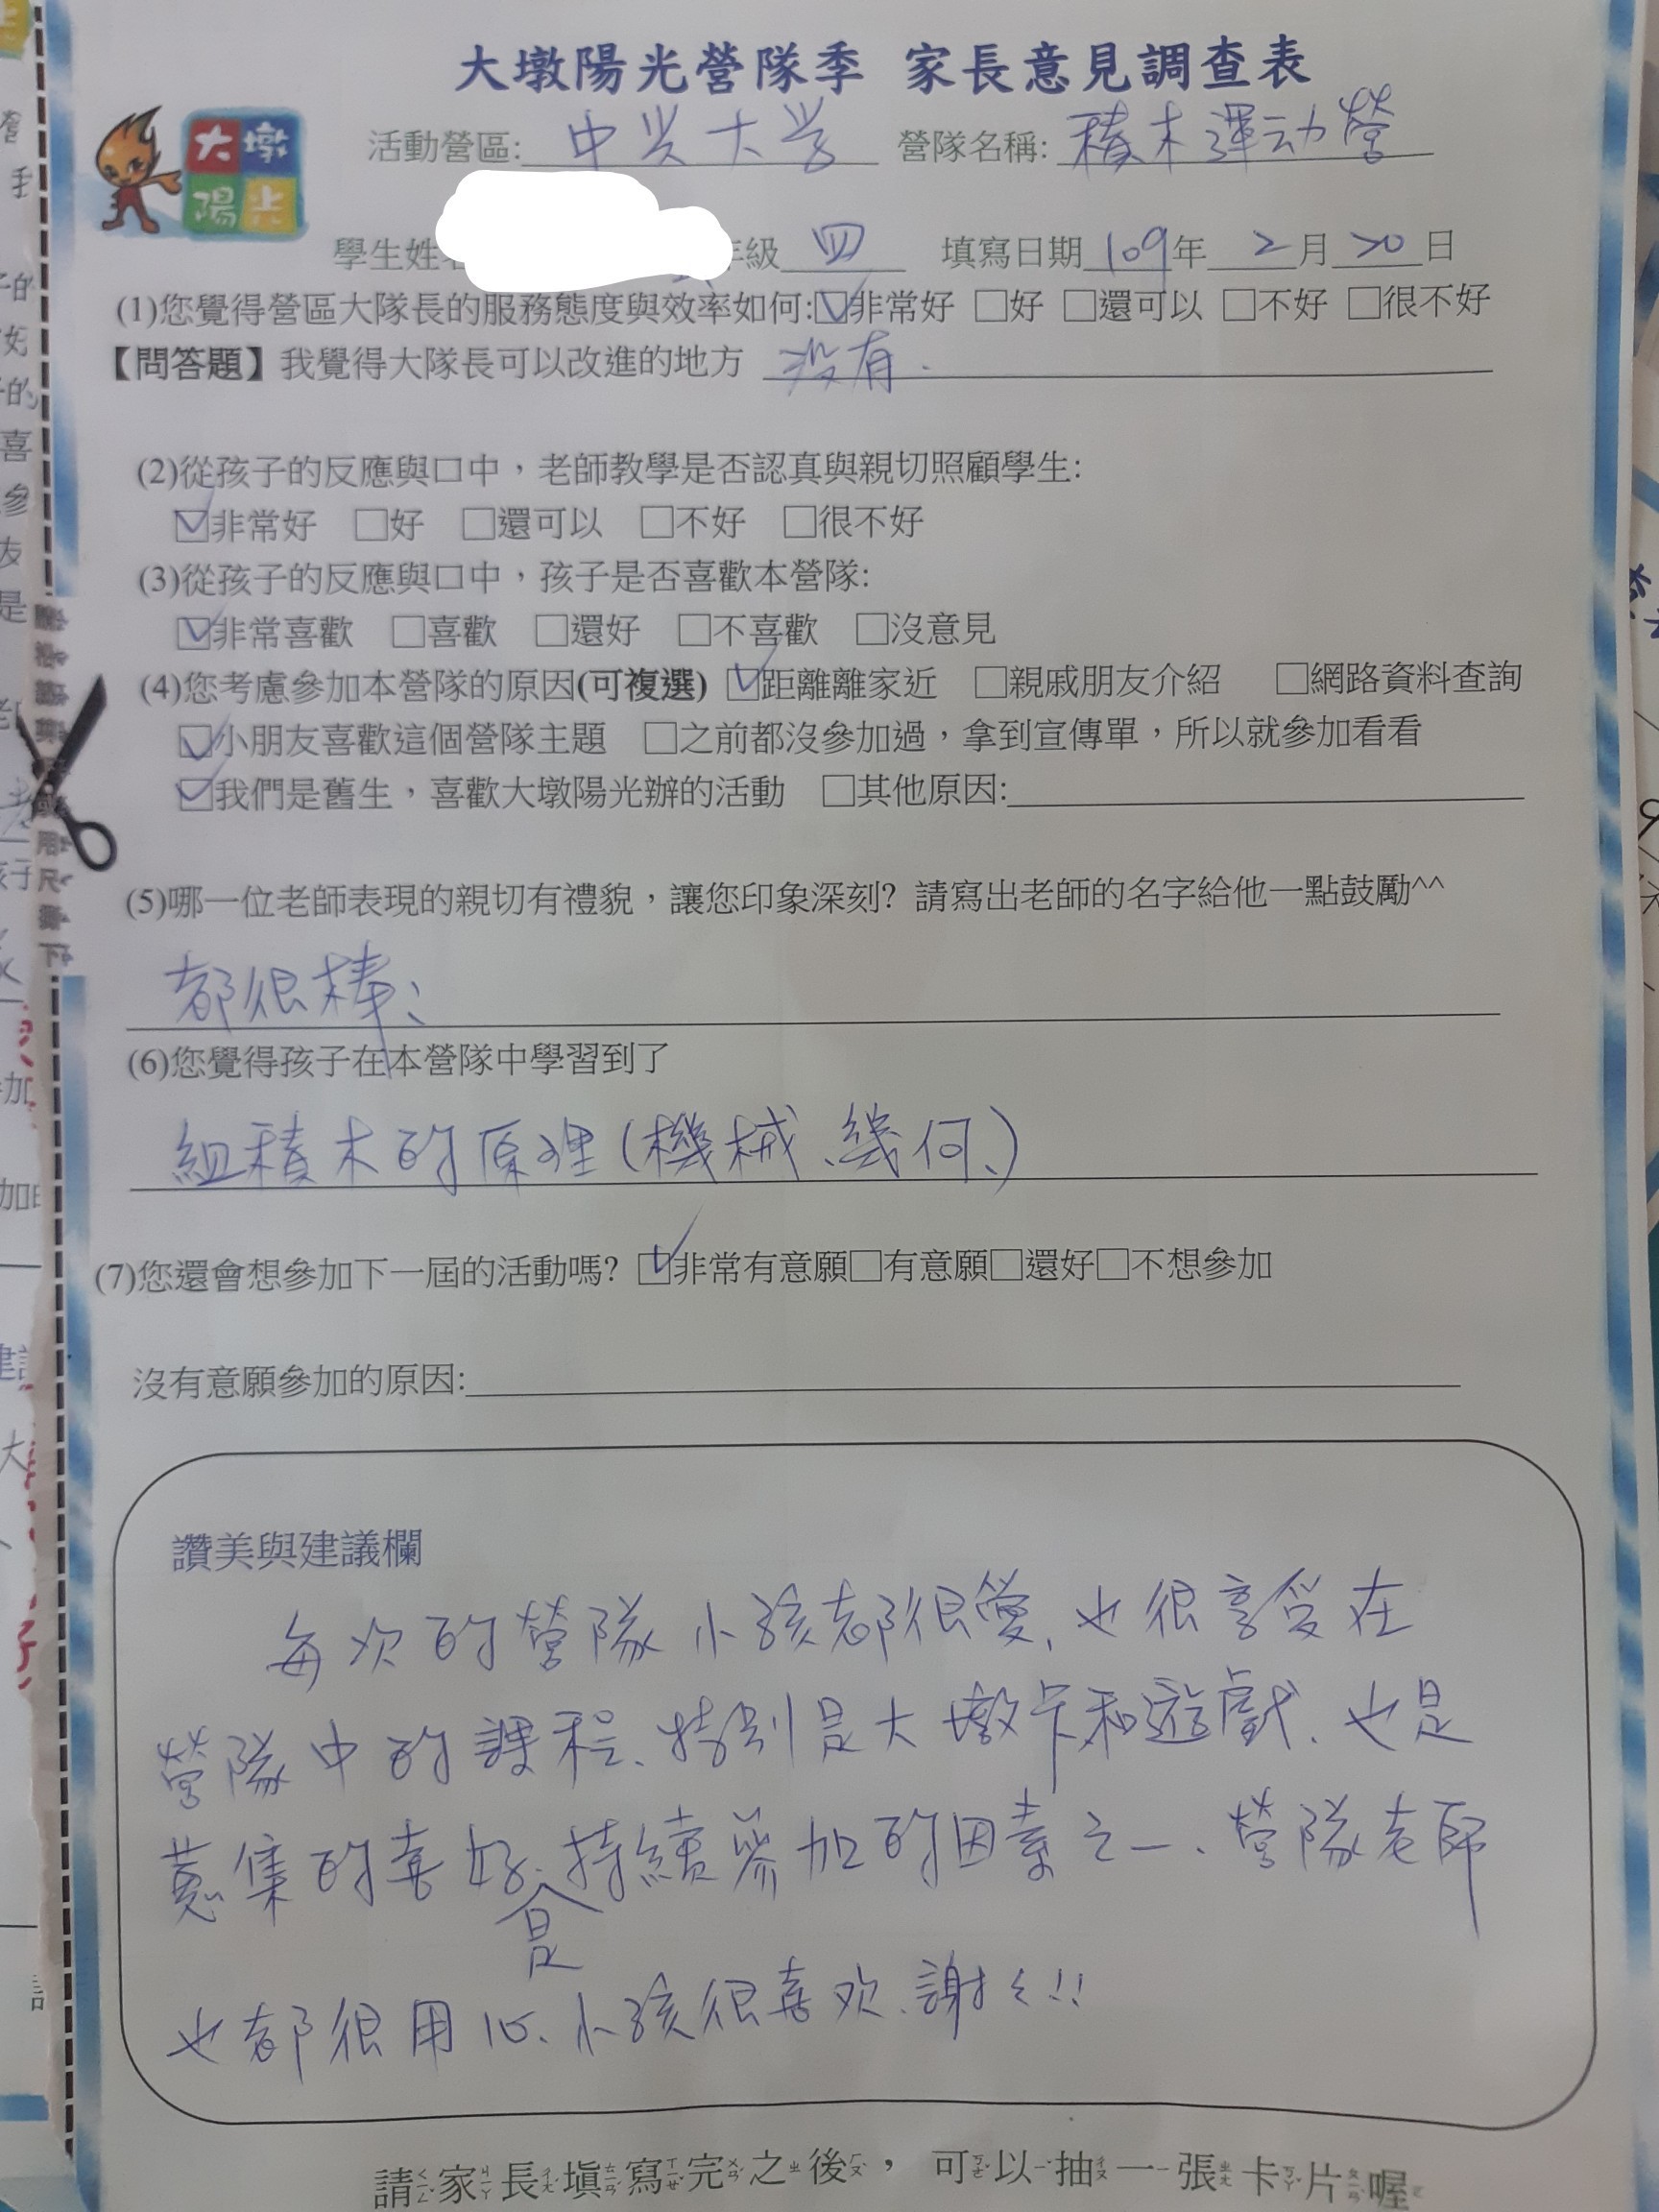 大墩陽光營隊季 家長意見調查表
大墩
陽光
活動營區: 中兴大学 營隊名稱: 積木運动營
學生姓 年級 四 填寫日期 109年 2月 20日
(1)您覺得營區大隊長的服務態度與效率如何:☑非常好 □好 □還可以 □不好 □很不好
【問答題】我覺得大隊長可以改進的地方 沒有.
(2)從孩子的反應與口中，老師教學是否認真與親切照顧學生:
☑非常好 □好 □還可以 □不好 □很不好
(3)從孩子的反應與口中，孩子是否喜歡本營隊:
☑非常喜歡 □喜歡 □還好 □不喜歡 □沒意見
(4)您考慮參加本營隊的原因(可複選) ☑距離離家近 □親戚朋友介紹 □網路資料查詢
☑小朋友喜歡這個營隊主題 □之前都沒參加過，拿到宣傳單，所以就參加看看
☑我們是舊生，喜歡大墩陽光辦的活動 □其他原因:
(5)哪一位老師表現的親切有禮貌，讓您印象深刻? 請寫出老師的名字給他一點鼓勵^^
都很棒、
(6)您覺得孩子在本營隊中學習到了
組積木的原理(機械、幾何、)
(7)您還會想參加下一屆的活動嗎? ☑非常有意願□有意願□還好□不想參加
沒有意願參加的原因:
讚美與建議欄
每次的營隊小孩都很愛、也很享受在
營隊中的課程、特別是大墩卡和遊戲、也是
蒐集的喜好、是持續參加的因素之一、營隊老師
也都很用心、小孩很喜欢、謝々!!
請家長填寫完之後， 可以抽一張卡片喔